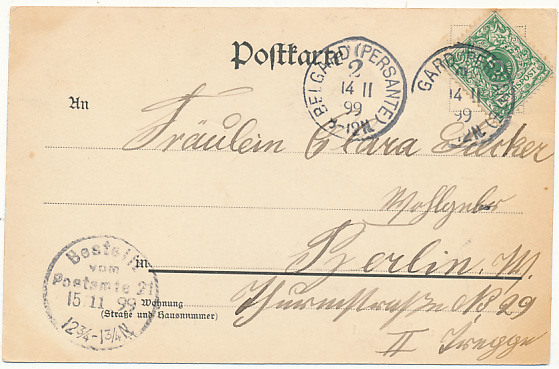 Postkarte
BELGARD (PERSANTE)
2
14 11
99
8-12N.
GARD (PERSANTE)
14 11
99
-12N.
An
Fräulein Clara Ducker
Wohlgeb.
In Berlin. W.
Bestellt
vom
Postamte 21
15 11 99
12¾-1¾N.
Wohnung
(Straße und Hausnummer)
Thurmstraße No 29
II Treppe